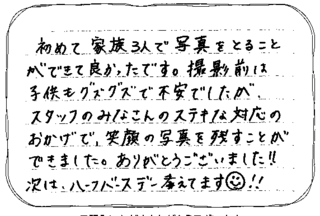 初めて家族3人で写真をとること
ができて良かったです。撮影前は
子供もグズグズで不安でしたが、
スタッフのみなさんのステキな対応の
おかげで、笑顔の写真を残すことが
できました。ありがとうございました!!
次は、ハーフバースデー考えてます☺!!